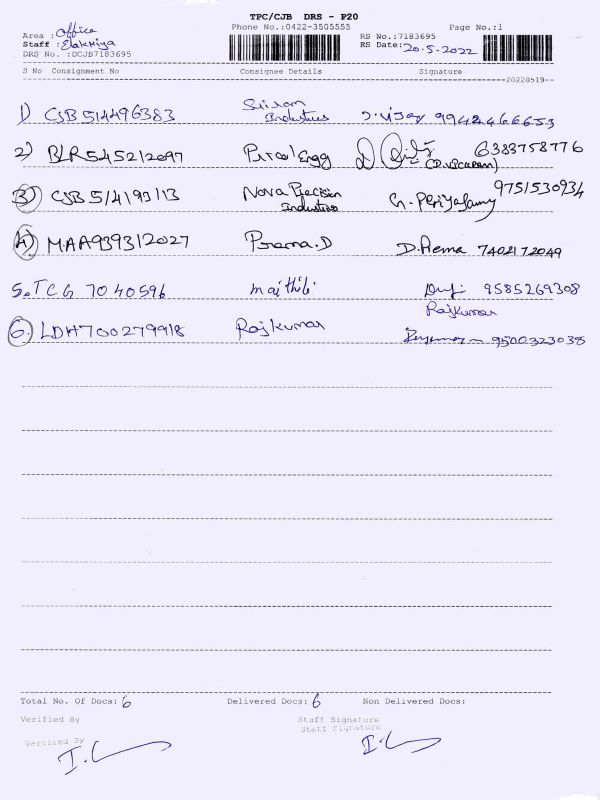 TPC/CJB DRS - P20
Phone No.:0422-3505555 Page No.:1
Area : office
Staff : Elakkiya
DRS No. :DCJB7183695
RS No.:7183695
RS Date: 20-5-2022
S No Consignment No Consignee Details Signature
20220519
1) CJB 514496383 Sriram Industries J. Vijay 9942466653
2) BLR545212097 Pircol Engg D (D. VICKRAM) 6383758776
3) CJB 514193113 Nova Precision Industries G. Periyasamy 9751530934
4) MAA939312027 Prema.D D. Prema 7402172049
5. TCG 7040596 maithili 9585269308
6) LDH700279918 Rajkumar Rajkumar 9500323038
Total No. Of Docs: 6 Delivered Docs: 6 Non Delivered Docs:
Verified By Staff Signature
Verified By Staff Signature